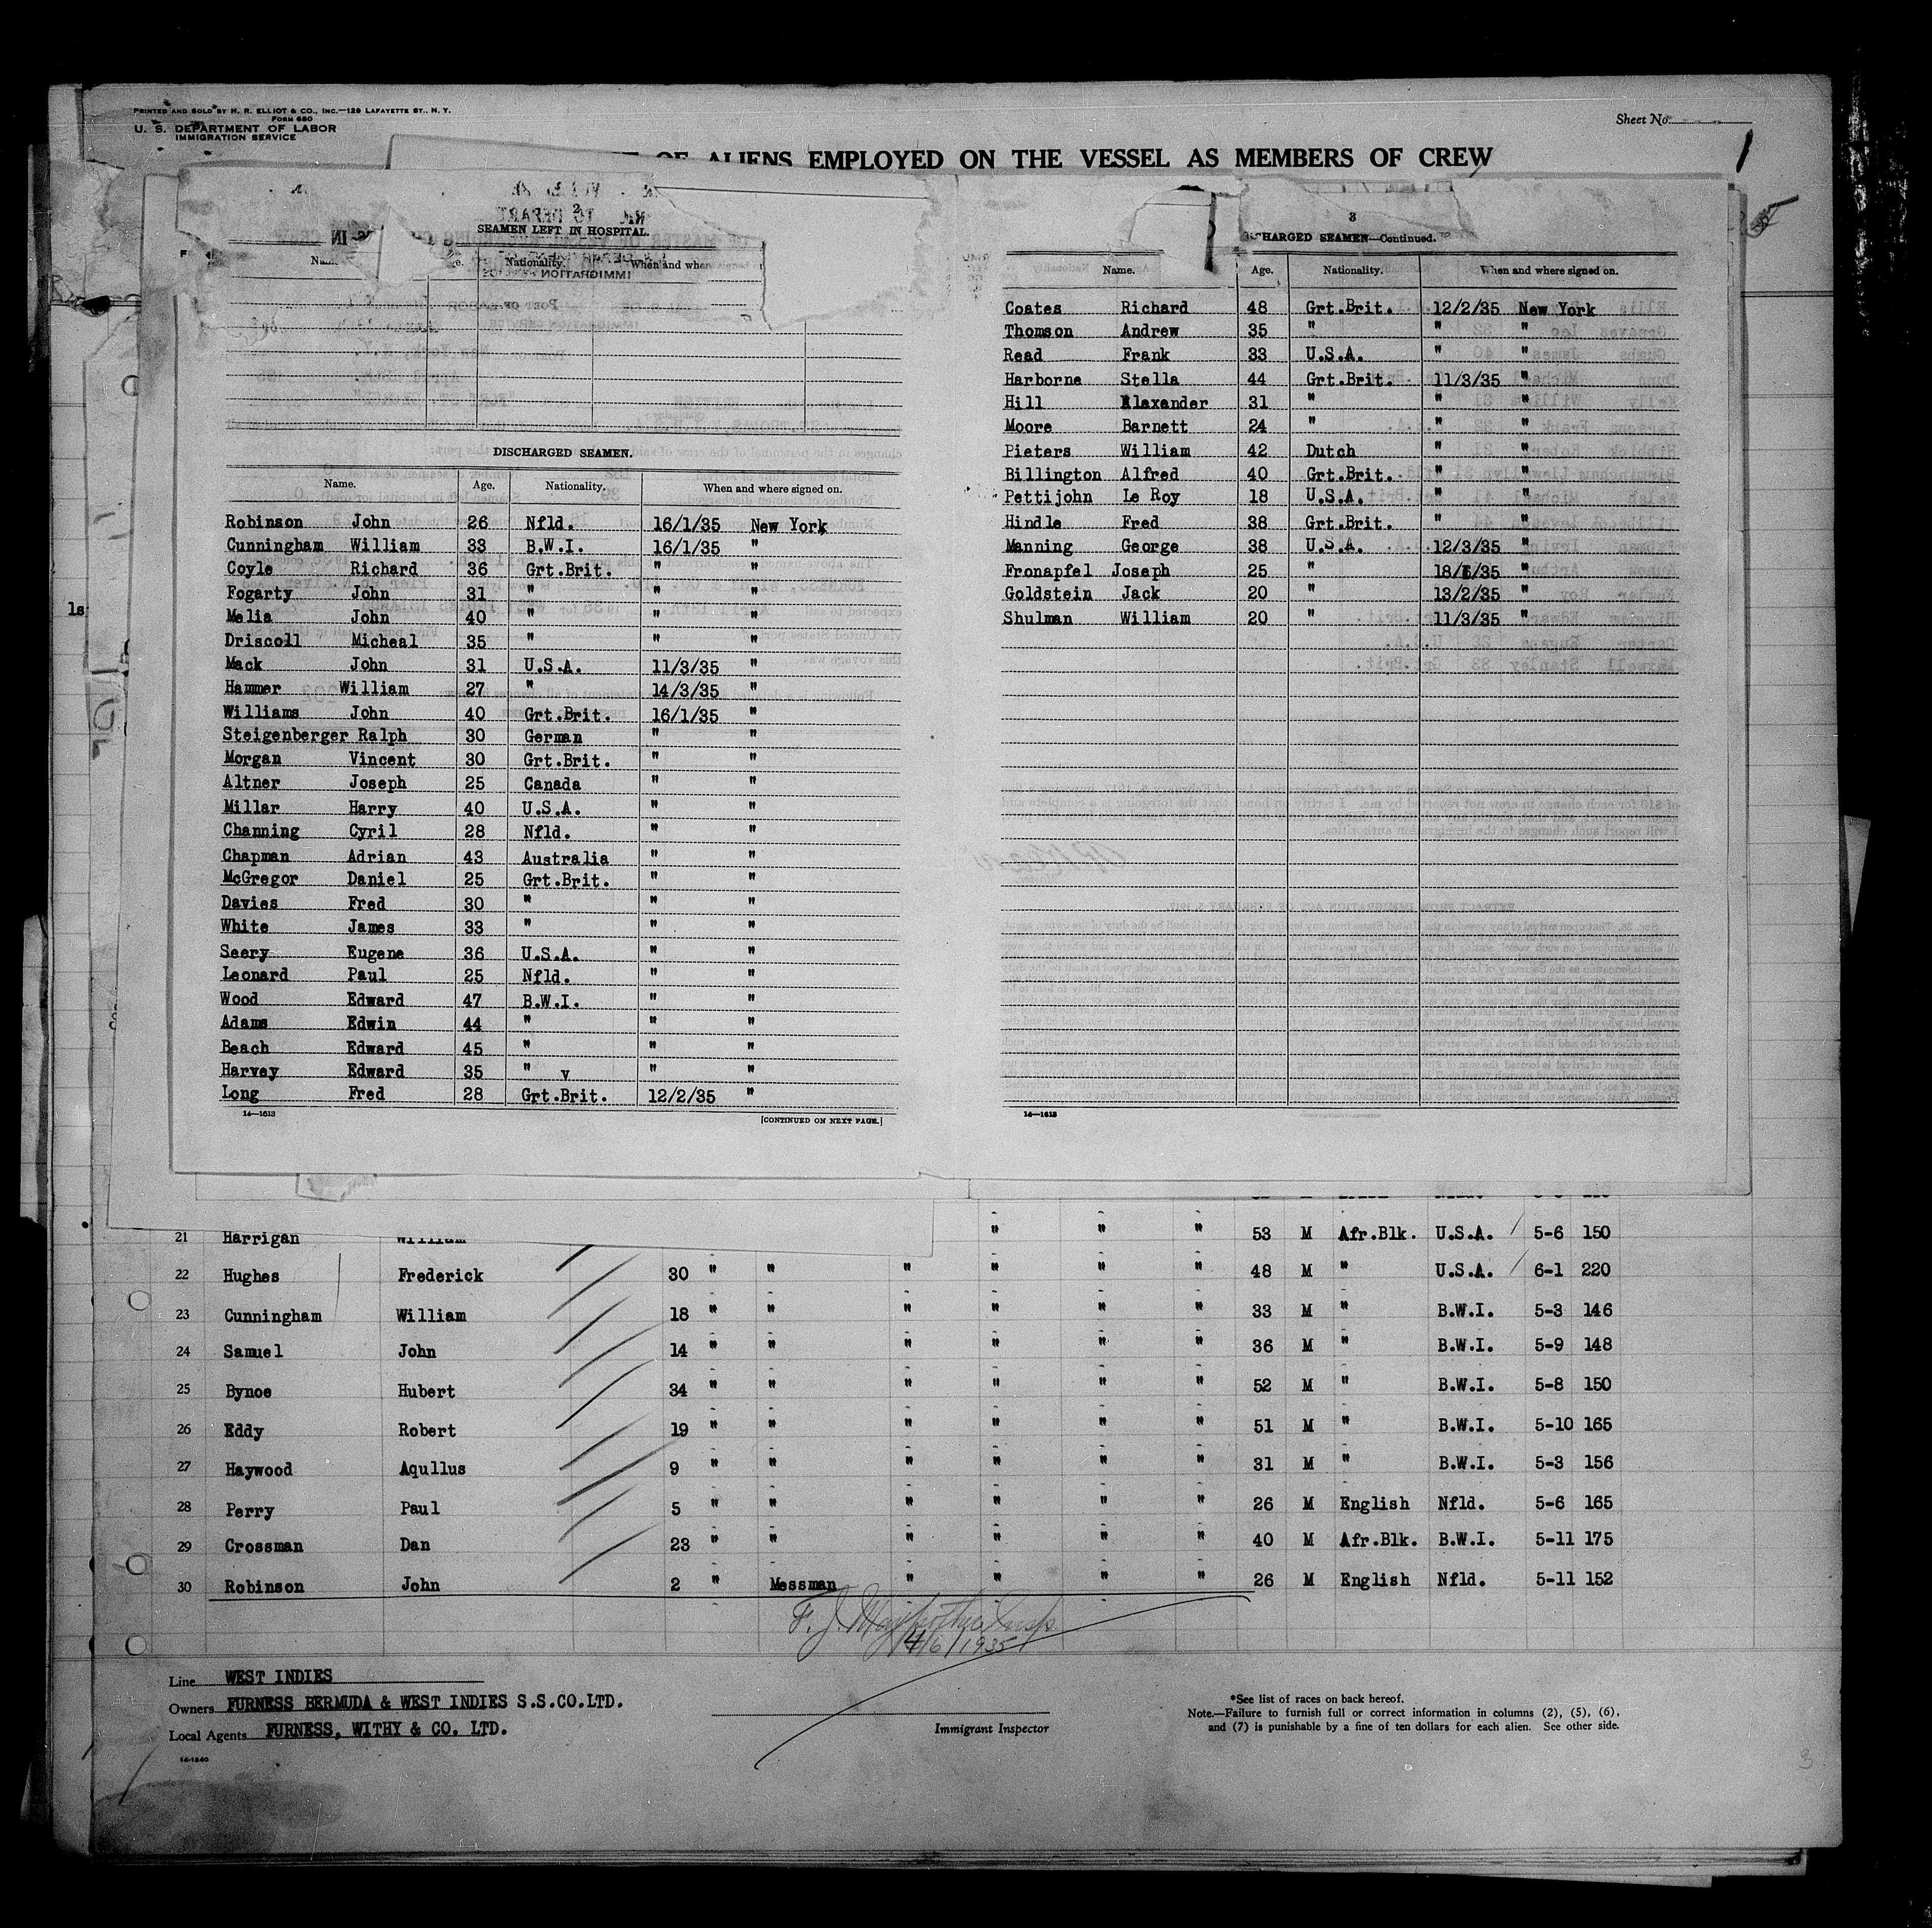 PRINTED AND SOLD BY H. R. ELLIOT & CO., INC.—129 LAFAYETTE ST., N. Y.
FORM 680
U. S. DEPARTMENT OF LABOR
IMMIGRATION SERVICE
Sheet No.
1
OF ALIENS EMPLOYED ON THE VESSEL AS MEMBERS OF CREW
2
SEAMEN LEFT IN HOSPITAL.
Nationality. When and whe
DISCHARGED SEAMEN.
Name. Age. Nationality. When and where signed on.
Robinson John 26 Nfld. 16/1/35 New York
Cunningham William 33 B.W.I. 16/1/35 "
Coyle Richard 36 Grt.Brit. " "
Fogarty John 31 " " "
Melia John 40 " " "
Driscoll Micheal 35 " " "
Mack John 31 U.S.A. 11/3/35 "
Hammer William 27 " 14/3/35 "
Williams John 40 Grt.Brit. 16/1/35 "
Steigenberger Ralph 30 German " "
Morgan Vincent 30 Grt.Brit. " "
Altner Joseph 25 Canada " "
Millar Harry 40 U.S.A. " "
Channing Cyril 28 Nfld. " "
Chapman Adrian 43 Australia " "
McGregor Daniel 25 Grt.Brit. " "
Davies Fred 30 " " "
White James 33 " " "
Seery Eugene 36 U.S.A. " "
Leonard Paul 25 Nfld. " "
Wood Edward 47 B.W.I. " "
Adams Edwin 44 " " "
Beach Edward 45 " " "
Harvey Edward 35 " v " "
Long Fred 28 Grt.Brit. 12/2/35 "
14—1613
[CONTINUED ON NEXT PAGE.]
3
CHARGED SEAMEN—Continued.
Name. Age. Nationality. When and where signed on.
Coates Richard 48 Grt.Brit. 12/2/35 New York
Thomson Andrew 35 " " "
Read Frank 33 U.S.A. " "
Harborne Stella 44 Grt.Brit. 11/3/35 "
Hill Alaxander 31 " " "
Moore Barnett 24 " " "
Pieters William 42 Dutch " "
Billington Alfred 40 Grt.Brit. " "
Pettijohn Le Roy 18 U.S.A. " "
Hindle Fred 38 Grt.Brit. " "
Manning George 38 U.S.A. 12/3/35 "
Fronapfel Joseph 25 " "
Goldstein Jack 20 " 13/2/35 "
Shulman William 20 " 11/3/35 "
14—1613
21 Harrigan William " " " 53 M Afr.Blk. U.S.A. 5-6 150
22 Hughes Frederick 30 " " " " " " 48 M " U.S.A. 6-1 220
23 Cunningham William 18 " " " " " " 33 M " B.W.I. 5-3 146
24 Samuel John 14 " " " " " " 36 M " B.W.I. 5-9 148
25 Bynoe Hubert 34 " " " " " " 52 M " B.W.I. 5-8 150
26 Eddy Robert 19 " " " " " " 51 M " B.W.I. 5-10 165
27 Haywood Aqullus 9 " " " " " " 31 M " B.W.I. 5-3 156
28 Perry Paul 5 " " " " " " 26 M English Nfld. 5-6 165
29 Crossman Dan 23 " " " " " " 40 M Afr.Blk. B.W.I. 5-11 175
30 Robinson John 2 " Messman " " " " 26 M English Nfld. 5-11 152
F. J.
4/6/1935
Line WEST INDIES
Owners FURNESS BERMUDA & WEST INDIES S.S.CO.LTD.
Local Agents FURNESS, WITHY & CO. LTD.
14-1240
Immigrant Inspector
*See list of races on back hereof.
Note.—Failure to furnish full or correct information in columns (2), (5), (6),
and (7) is punishable by a fine of ten dollars for each alien. See other side.
3